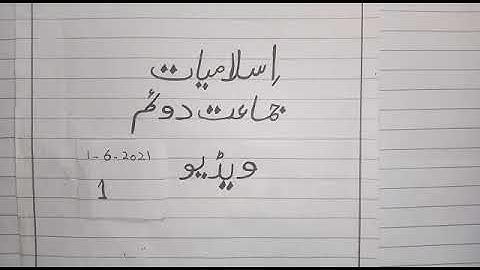 اِسلامیات
جماعت دوئم
ویڈیو
1-6-2021
1